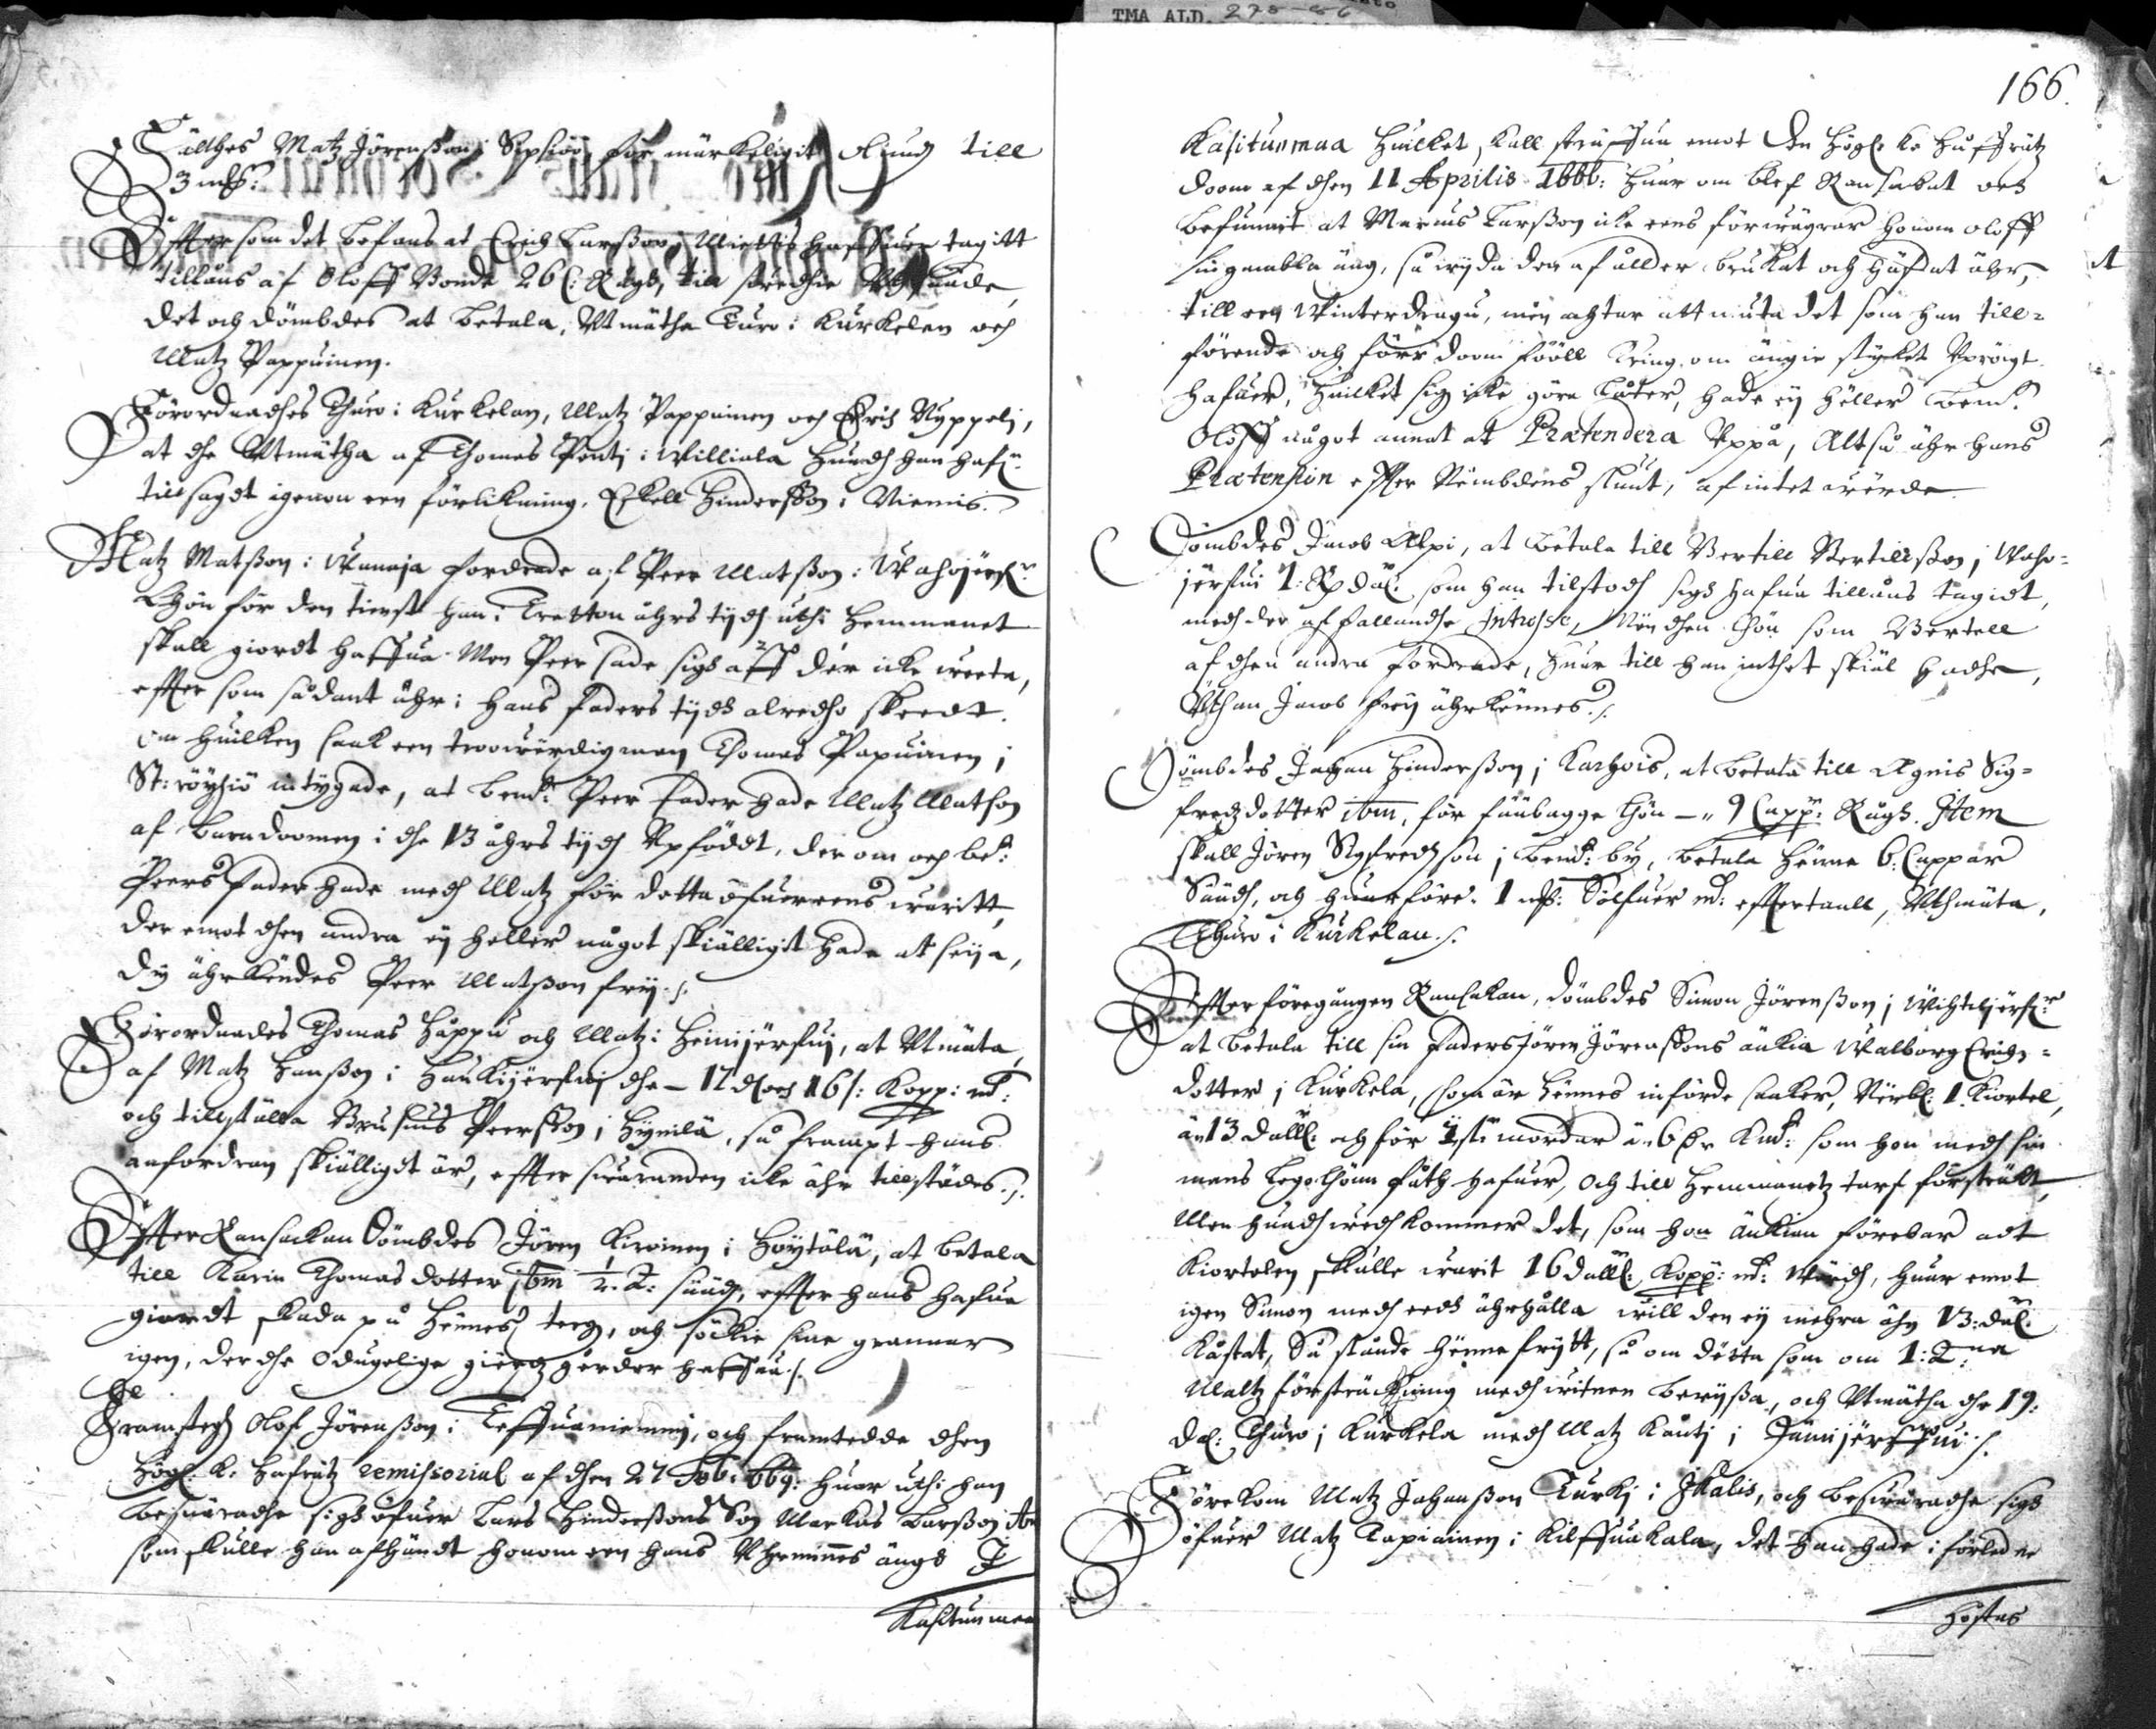 TMA ALD. 275-86
166.
Fälthes Matz Jörenßon i Sipsiöö för märkeligit oliudh till
3 mk:
Effter som det befans at Erich Larßon i Miettis haffuer tagitt
tillåns af Oloff Bonde 26 C: Rågh, till
det och dömbdes at betala, Vtmätha Turo i Kurkelan och
Matz Pappuinen.
Förordnadhes Thuro i Kurkelan, Matz Pappuinen och Erich Nyppelj,
at dhe Vtmätha af Thomas Pentj i Williala huadh han hafr
tillsagdt igenom een förlikning, Eskell Hindersßon i Niemis.
Matz Matßon i Wanaja fordrade af Peer Matßon i Wahojerfr
Lhön för den tienst han i Tretton åhrs tijdh uthi hemmanet
skall giordt haffua. Men Peer sade sigh äff der icke weeta,
effter som sådant ähr i hans faders tijdh alredho skeedt.
om huilken saak een troowerdig man Thomas Papuinen j
St: röyhiö intygade, at bemd: Peer fader hade Matz Matson
af barndoomen i dhe 13 åhrs tijdh Vpfödt, der om och bd:
Peers fader hade medh Matz för detta öfuerrens warit,
der emot dhen andra ey heller något skiälligit hade at seija,
dy ährkändes Peer Matßon frij./.
Förordnades Thomas Happu och Matz i Heinijerfuj, at Vtmäta,
af Matz Hanßon i Haukijerfwj dhe - 12 d och 16 s: Kopp: mt:
och tillställa Brusius Peersßon i Hynilä, så frampt hans
anfordran skiälligdt är, effter swaranden icke ähr tillstädes./.
Effter Ransackan dömbdes Jören Kirvinen i Höytölä, at betala
till Karin Thomas dotter ibm 1/2 T: säädh, effter hans hafua
giordt skada på hennes teeg, och sökie sine grannar
igen, der dhe odugelige gierdzgårder haffua./.
Framstegh Olof Jörenßon i Leffuaniemmi, och framtedde dhen
Högl. K: hofrätz remissorial af dhen 27 Feb: 669: huar uthi han
besuäradhe sigh öfuer Lars Hinderßons Son Markus Larßon ibm
som skulle han afhändt honom een hans Vhrminnes ängh J
Kasitunmaa
Kasitunmaa huilket skall sträffua emot den Högl: Ko: Hoffrätz
doom af dhen 11 Aprilis 1666: huar om blef Ransakat och
befunnit at Marcus Larßon icke eens förwägrar honom Oloff
sin gambla äng, så wijda den af ållder brukat och häfdat ähr,
till een Winterdragu, men achtar att niuta det som han till=
förende och förr doom fööll kring om ängie stycket Vprögt
hafuer, huilket sig icke göra låter, hade ey heller bemd:
Oloff något annat at Prætendera Vppå, Altså ähr hans
Prætension effter Nämbdens skiut, af intet wärde
Dömbdes Jacob Alpi, at betala till Bertill Bertillßon j Waho=
jerfui 1: Rd: som han tilstodh sigh hafua tillåns tagidt,
medh der affallandhe Intresse, Men dhen Lhön som Bertell
af dhen andra fordrade, huar till han inthet skiäl hadhe,
Vthan Jacob frij ährkännes./.
Dömbdes Johan Hinderßon j Karhois, at betala till Agnis Sig=
fredzdotter ibm, för fäubagge lhön - " 9 Capp: Rågh. Item
skall Jören Sigfredhson j bemd: by, betala henne 6: Cappar
Säädh, och huarföre 1 mk: Sölfuer mt: effterlaatt, Vthmäta,
Thuro i Kurkelan./.
Effter föregången Ransakan, dömbdes Simon Jörenßon j Wihtiljerfr
at betala till sin faders Jören Jörensßons änkia Walborg Erichs=
dotter j Kurkela, som är hennes införde saaker, Nembl. 1 Kiortel,
än 13 dallr och för 1 st: mordar än 6 dr Kmt: som hon medh sin
mans lego lhönn fåth hafuer, och till hemmanetz tarf försträckt,
Men huadh wedhkommer det, som hon änkian förebar att
kiortelen skulle warit 16 dallr: Kopp: mt: Wärdh, huar emot
igen Simon medh eedh ährhålla will den ey mehra ähn 13: dal:
kåstat, Så stånde henne fritt, så om detta som om 1: T:na
Maltz försträckning medh witnen bewijßa, och Vtmätha dhe 19:
dal: Thuro j Kurkela medh Matz Kautj j Jämijerfui./.
Förekom Matz Johanßon Turkj i Ikalis, och beswäradhe sigh
öfuer Matz Tapiainen i Kilffuakala, det han hade i förledne
höstas